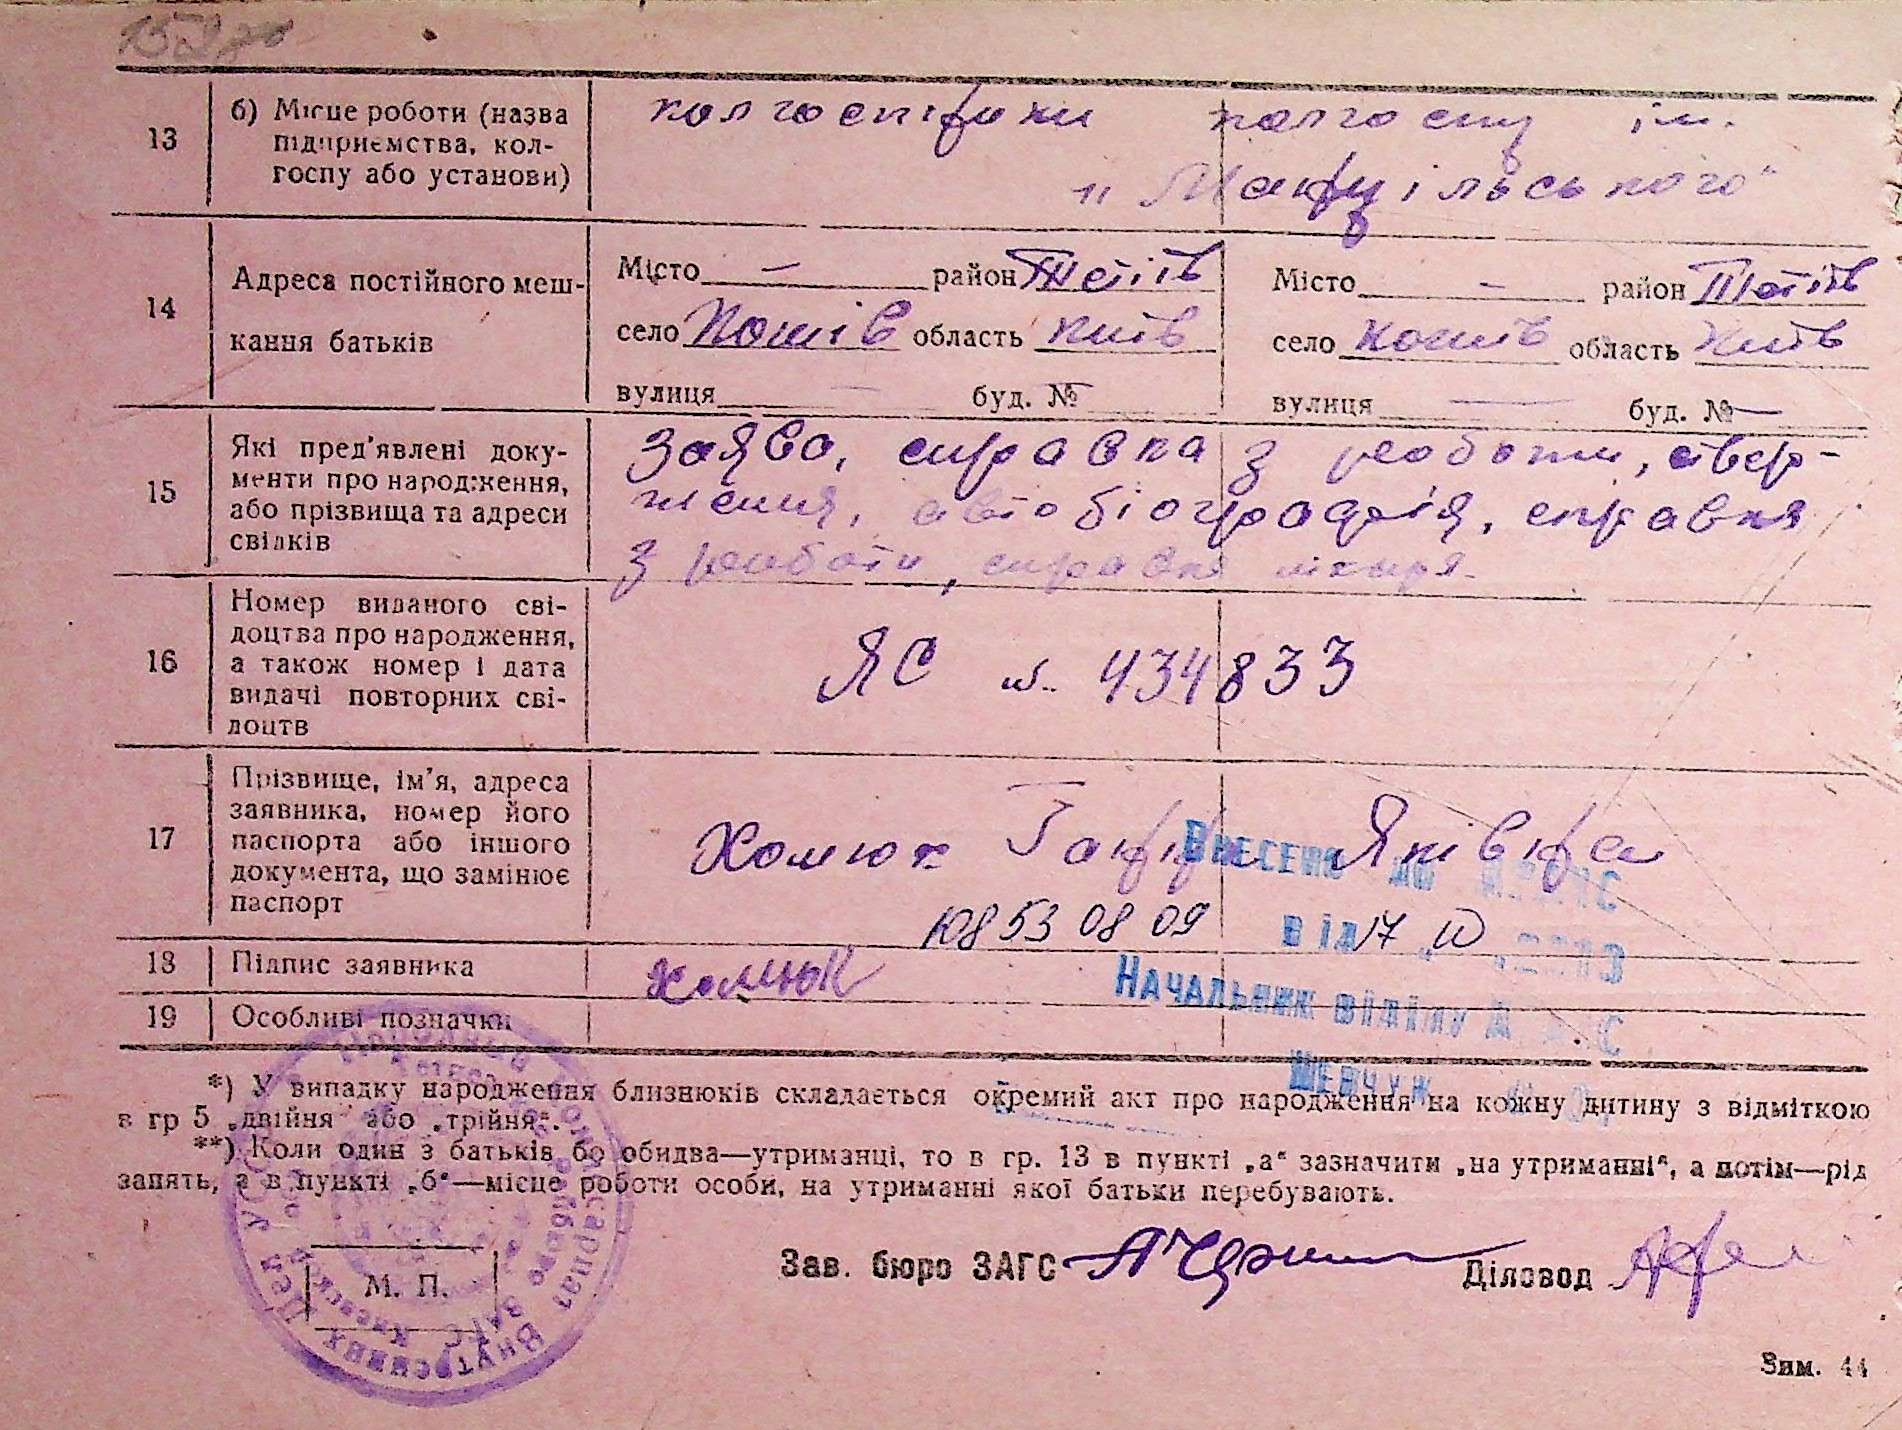 13
б) Місце роботи (назва
підприємства, кол-
госпу або установи)
колгоспники колгоспу ім.
14
Адреса постійного меш-
кання батьків
Місто — район Тетіїв
село Кошів область Київ
вулиця — буд. №
Місто — район Тетіїв
село Кошів область Київ
вулиця — буд. № —
15
Які пред'явлені доку-
менти про народження,
або прізвища та адреси
свідків
Заява, справка з роботи, ствер-
ження, автобіографія, справка
з роботи, справка лікаря.
16
Номер виданого сві-
доцтва про народження,
а також номер і дата
видачі повторних сві-
доцтв
ЯС № 434833
17
Прізвище, ім'я, адреса
заявника, номер його
паспорта або іншого
документа, що замінює
паспорт
Хомюк Яківна
Внесено до
від 17 IV
0853 08 09
18
Підпис заявника
Хомюк
Начальник відділу
19
Особливі позначки
Шевчук
*) У випадку народження близнюків складається окремий акт про народження на кожну дитину з відміткою
в гр 5 „двійня" або „трійня".
**) Коли один з батьків бо обидва—утриманці, то в гр. 13 в пункті „а" зазначити „на утриманні", а потім—рід
занять, а в пункті „б"—місце роботи особи, на утриманні якої батьки перебувають.
Зав. бюро ЗАГС
Діловод
М. П.
Внутренних Дел УССР
Зим. 44